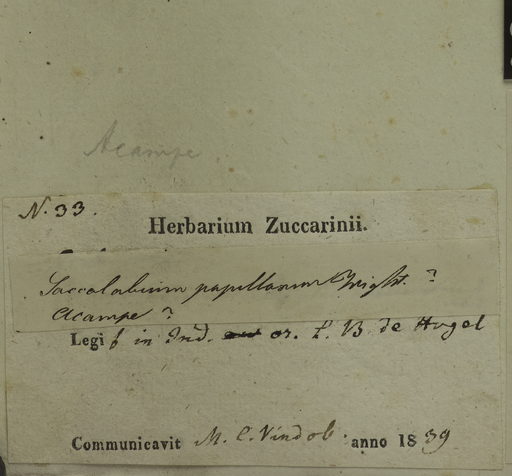 Acampe
N. 33.
Herbarium Zuccarinii.
Saccolabium papillosum Wight. ?
Acampe ?
Legit in Ind. or. L. B. de Hugel
Communicavit M. C. Vindob. anno 1839